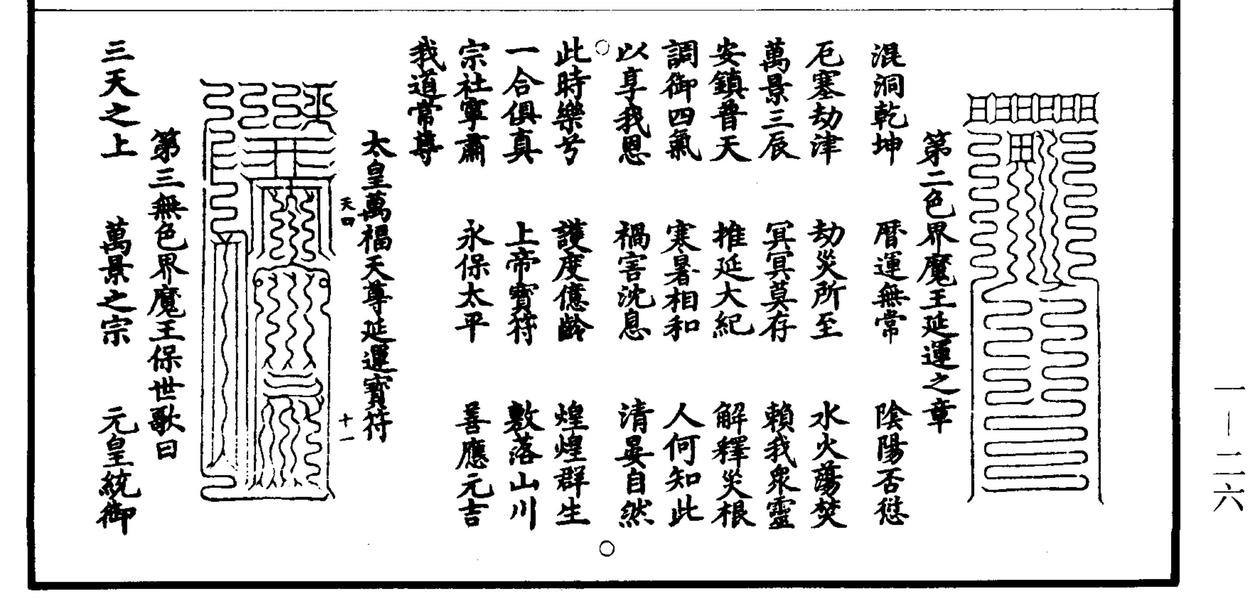 第二色界魔王延運之章
混洞乾坤　曆運無常　陰陽否愆
厄塞劫津　劫災所至　水火蕩焚
萬景三辰　冥冥莫存　賴我眾靈
安鎮普天　推延大紀　解釋災根
調御四氣　寒暑相和　人何知此
以享我恩　禍害沈息　清晏自然
此時樂兮　護度億齡　煌煌群生
一合俱真　上帝寶符　敷落山川
宗社寧肅　永保太平　善應元吉
我道常尊
太皇萬福天尊延運寶符
天四　十一
第三無色界魔王保世歌曰
三天之上　萬景之宗　元皇統御
一－二六